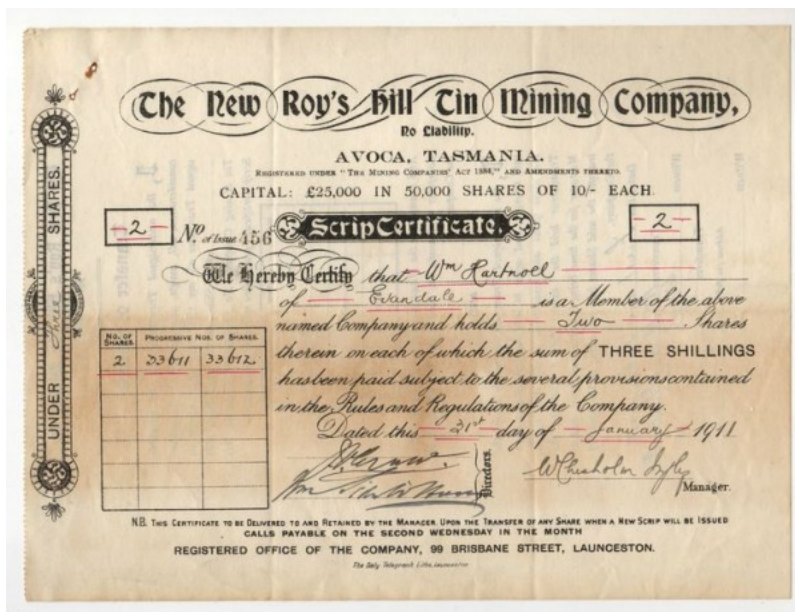 The New Roy's Hill Tin Mining Company,
No Liability.
AVOCA, TASMANIA.
REGISTERED UNDER "THE MINING COMPANIES' ACT 1884," AND AMENDMENTS THERETO.
CAPITAL: £25,000 IN 50,000 SHARES OF 10/- EACH.
2
No. of Issue 456
Scrip Certificate.
2
We Hereby Certify that Wm Hartnoll
of Evandale is a Member of the above
named Company and holds Two Shares
therein on each of which the sum of THREE SHILLINGS
has been paid subject to the several provisions contained
in the Rules and Regulations of the Company.
Dated this 31st day of January 1911
Directors.
W Chisholm
Manager.
UNDER Three SHARES.
NO. OF SHARES. PROGRESSIVE NOS. OF SHARES.
2 33611 33612
N.B. THIS CERTIFICATE TO BE DELIVERED TO AND RETAINED BY THE MANAGER UPON THE TRANSFER OF ANY SHARE WHEN A NEW SCRIP WILL BE ISSUED
CALLS PAYABLE ON THE SECOND WEDNESDAY IN THE MONTH
REGISTERED OFFICE OF THE COMPANY, 99 BRISBANE STREET, LAUNCESTON.
The Daily Telegraph Litho. Launceston